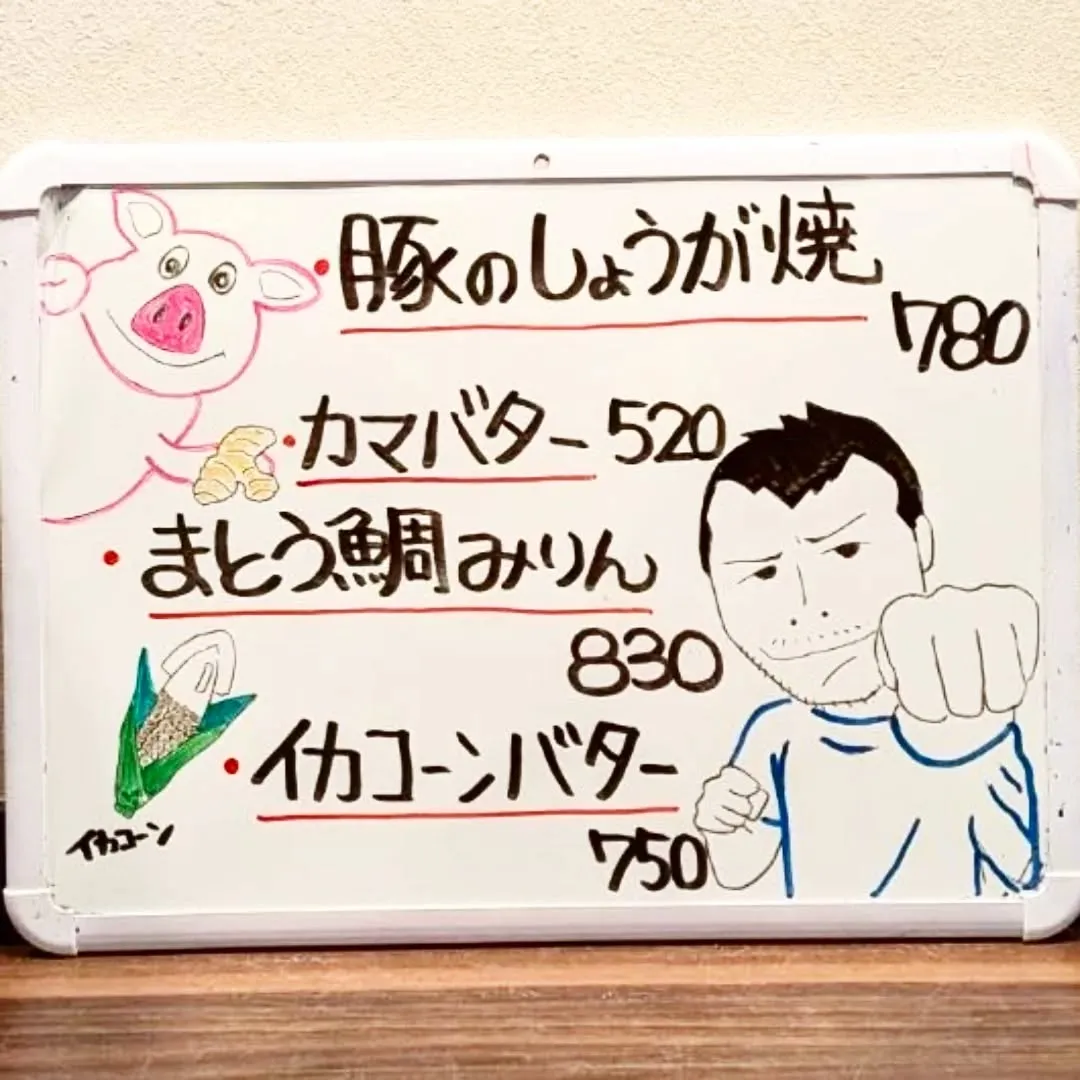 ・豚のしょうが焼
780
・カマバター 520
・まとう鯛みりん
830
・イカコーンバター
750
イカコーン